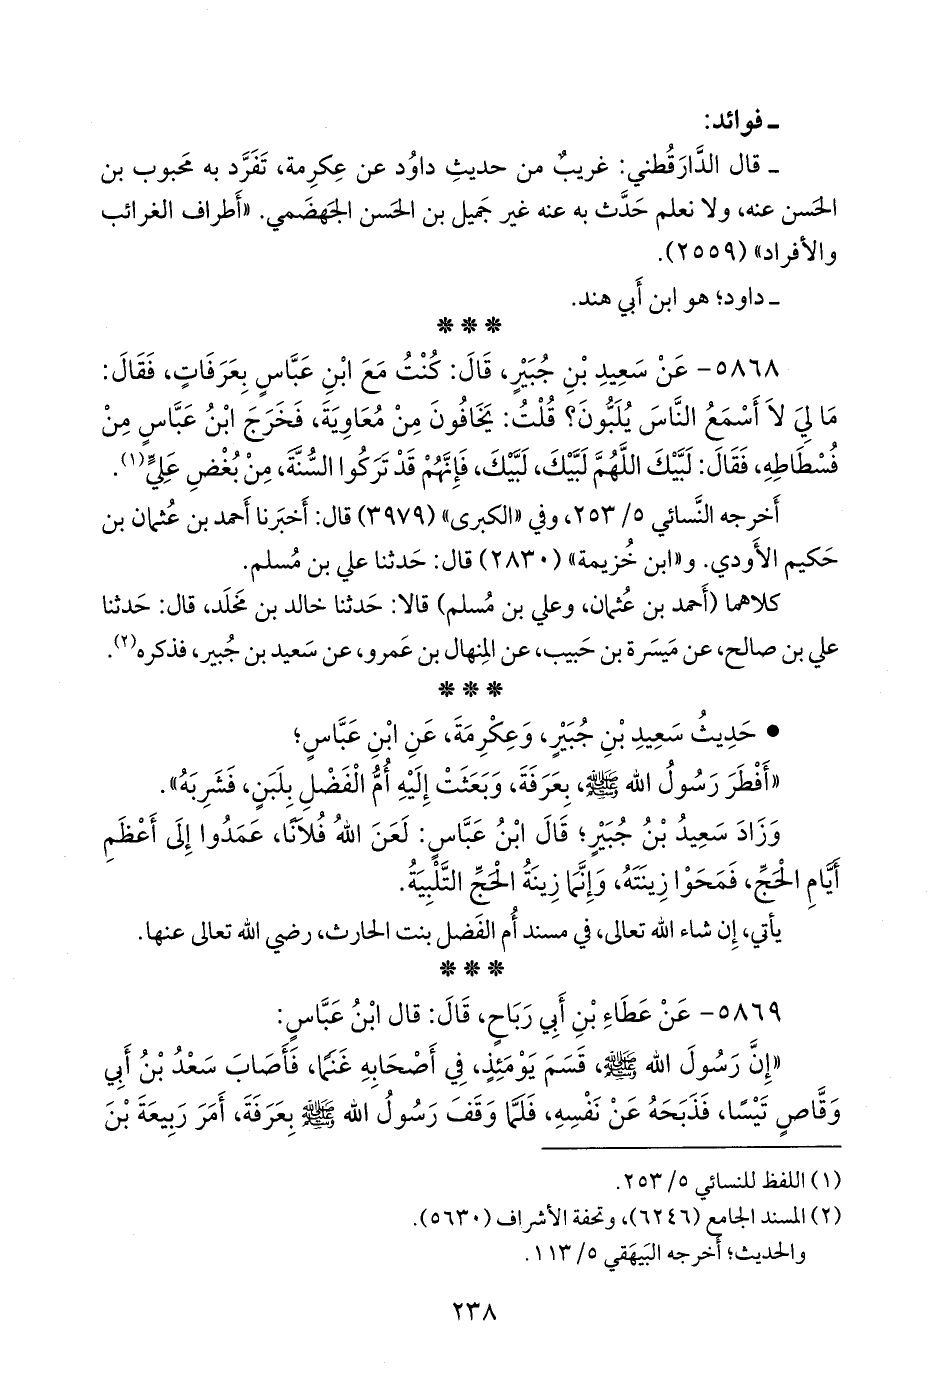 ـ فوائد:
ـ قال الدَّارَقُطني: غريبٌ من حديثِ داوُد عن عِكرِمة، تَفَرَّد به محَبوب بن
الحَسن عنه، ولا نعلم حَدَّث به عنه غير جَميل بن الحَسن الجَهضَمي. «أطراف الغرائب
والأفراد» (٢٥٥٩).
ـ داود؛ هو ابن أَبي هند.
* * *
٥٨٦٨- عَنْ سَعِيدِ بْنِ جُبَيْرٍ، قَالَ: كُنْتُ مَعَ ابْنِ عَبَّاسٍ بِعَرَفَاتٍ، فَقَالَ:
مَا لِيَ لاَ أَسْمَعُ النَّاسَ يُلَبُّونَ؟ قُلْتُ: يَخَافُونَ مِنْ مُعَاوِيَةَ، فَخَرَجَ ابْنُ عَبَّاسٍ مِنْ
فُسْطَاطِهِ، فَقَالَ: لَبَّيْكَ اللَّهُمَّ لَبَّيْكَ، لَبَّيْكَ، فَإِنَّهُمْ قَدْ تَرَكُوا السُّنَّةَ، مِنْ بُغْضِ عَلِيٍّ(١).
أَخرجه النَّسائي ٥/ ٢٥٣، وفي «الكبرى» (٣٩٧٩) قال: أَخبَرنا أَحمد بن عُثمان بن
حَكيم الأَودي. و«ابن خُزيمة» (٢٨٣٠) قال: حَدثنا علي بن مُسلم.
كلاهما (أَحمد بن عُثمان، وعلي بن مُسلم) قالا: حَدثنا خالد بن مَخلَد، قال: حَدثنا
علي بن صالح، عن مَيسَرة بن حَبيب، عن المِنهال بن عَمرو، عن سَعيد بن جُبير، فذكره(٢).
* * *
• حَدِيثُ سَعِيدِ بْنِ جُبَيْرٍ، وَعِكْرِمَةَ، عَنِ ابْنِ عَبَّاسٍ؛
«أَفْطَرَ رَسُولُ الله ﷺ، بِعَرَفَةَ، وَبَعَثَتْ إِلَيْهِ أُمُّ الْفَضْلِ بِلَبَنٍ، فَشَرِبَهُ».
وَزَادَ سَعِيدُ بْنُ جُبَيْرٍ؛ قَالَ ابْنُ عَبَّاسٍ: لَعَنَ اللهُ فُلاَنًا، عَمَدُوا إِلَى أَعْظَمِ
أَيَّامِ الْحَجِّ، فَمَحَوْا زِينَتَهُ، وَإِنَّمَا زِينَةُ الْحَجِّ التَّلْبِيَةُ.
يأتي، إِن شاء الله تعالى، في مسند أُم الفَضل بنت الحارث، رضي الله تعالى عنها.
* * *
٥٨٦٩- عَنْ عَطَاءِ بْنِ أَبِي رَبَاحٍ، قَالَ: قال ابْنُ عَبَّاسٍ:
«إِنَّ رَسُولَ الله ﷺ، قَسَمَ يَوْمَئِذٍ، فِي أَصْحَابِهِ غَنَمًا، فَأَصَابَ سَعْدُ بْنُ أَبِي
وَقَّاصٍ تَيْسًا، فَذَبَحَهُ عَنْ نَفْسِهِ، فَلَمَّا وَقَفَ رَسُولُ الله ﷺ بِعَرَفَةَ، أَمَرَ رَبِيعَةَ بْنَ
(١) اللفظ للنسائي ٥/ ٢٥٣.
(٢) المسند الجامع (٦٢٤٦)، وتحفة الأشراف (٥٦٣٠).
والحديث؛ أَخرجه البَيهَقي ٥/ ١١٣.
٢٣٨